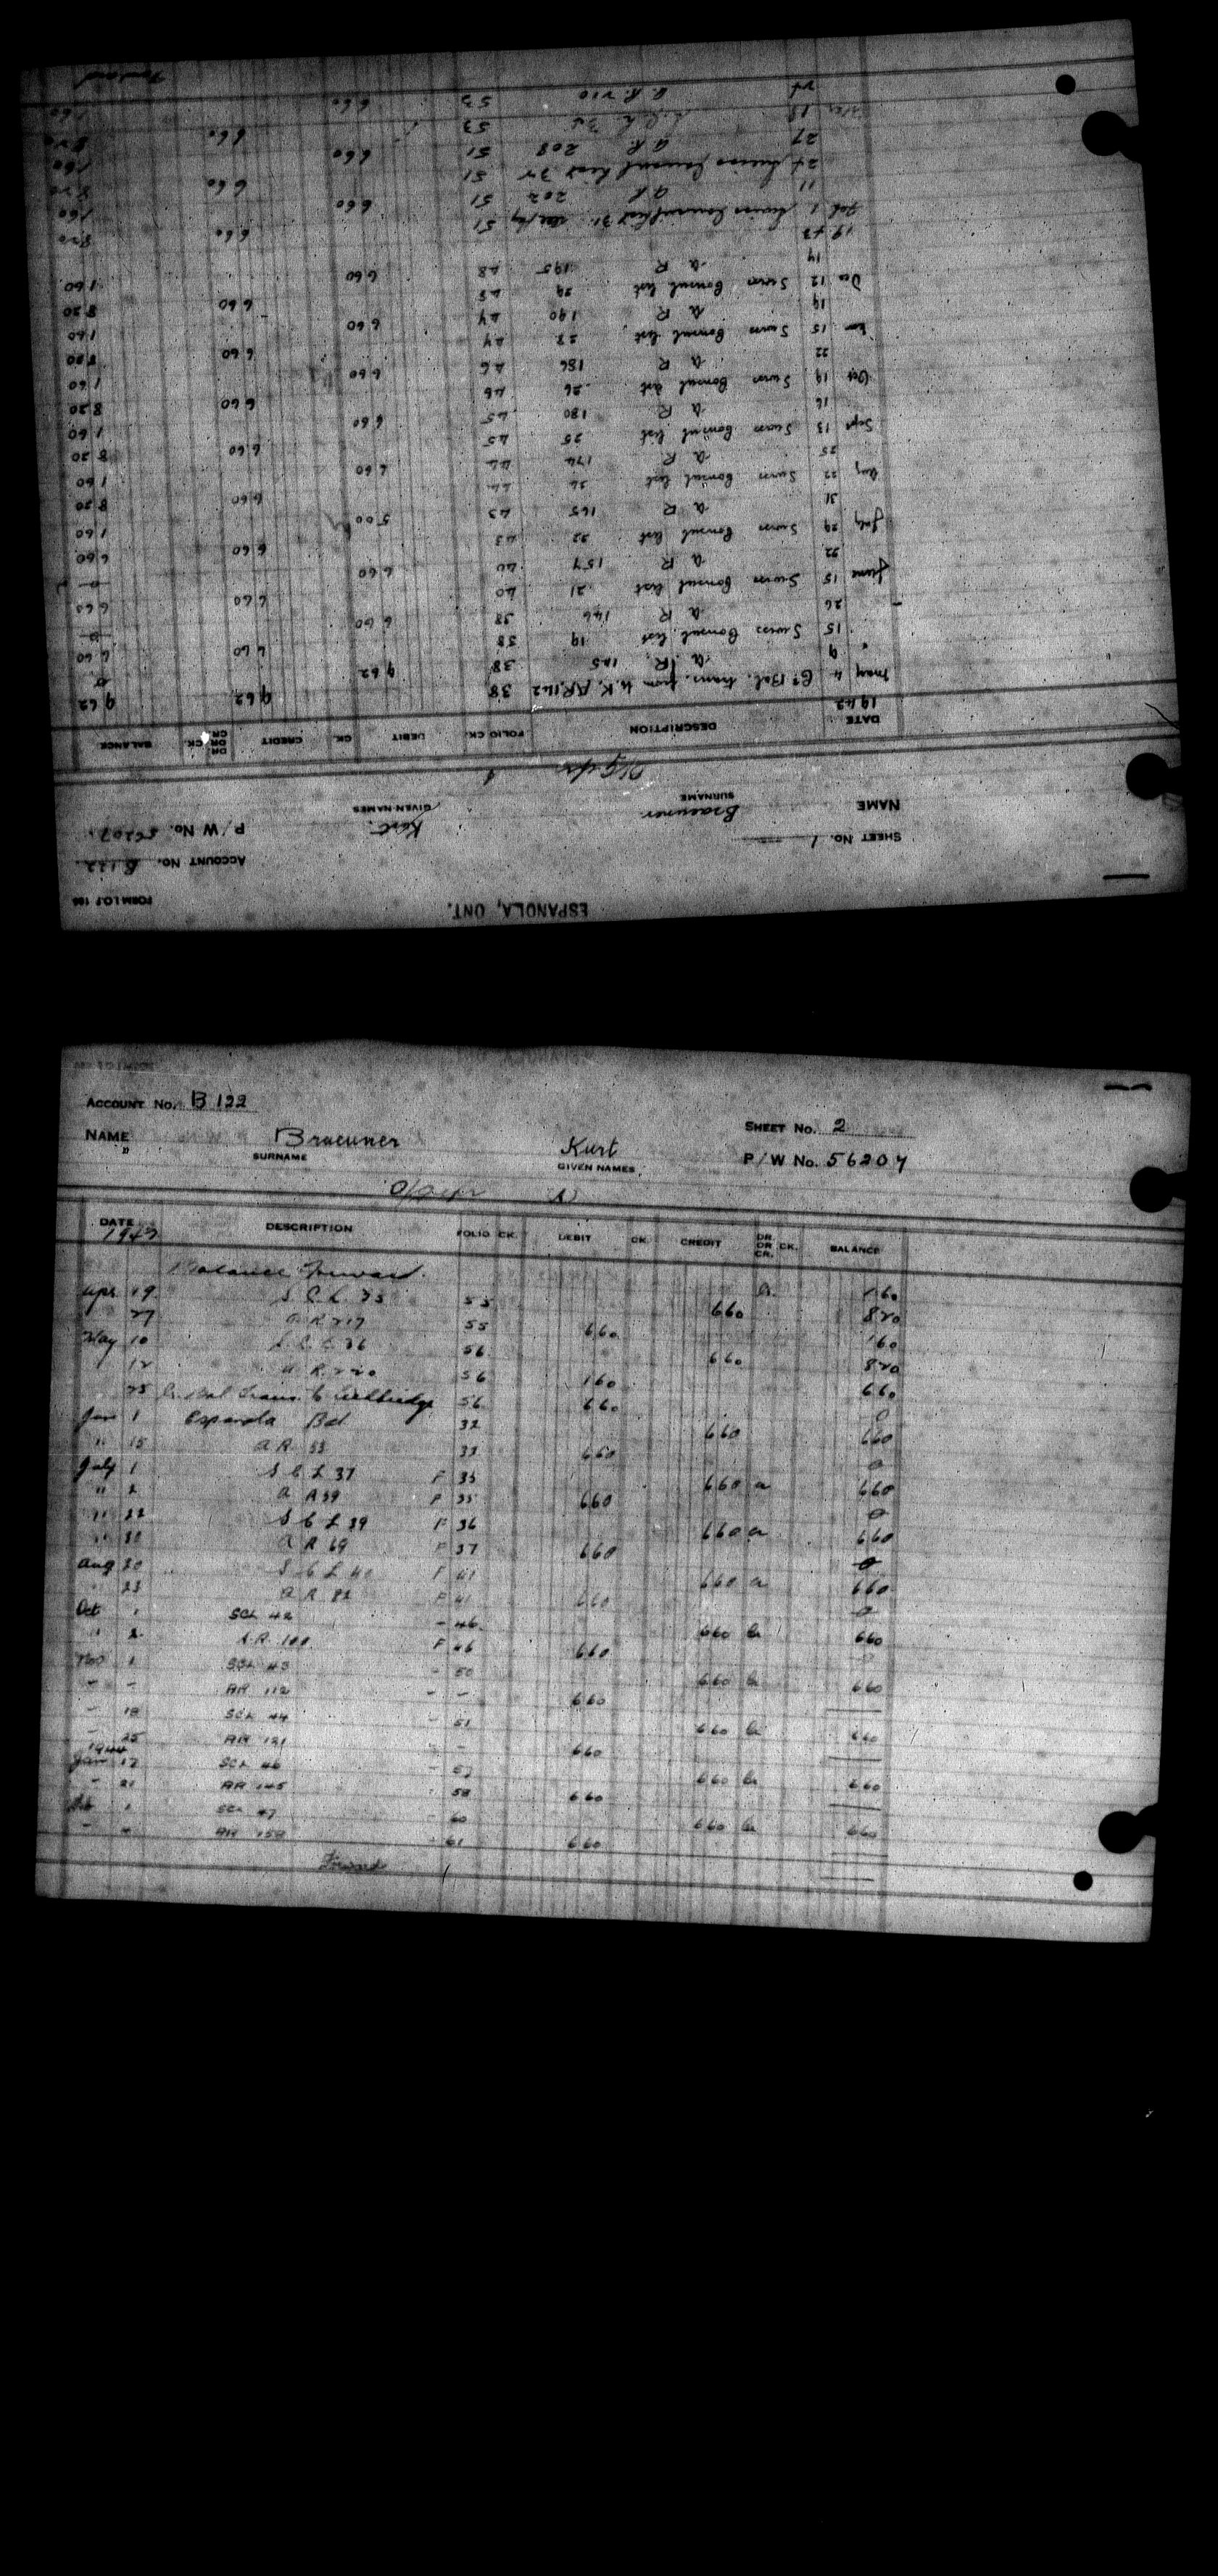 ESPANOLA, ONT.
FORM I.O.P. 166
SHEET No. 1 ACCOUNT No. B 122
NAME Braeuner Kurt. P/W No. 56207.
SURNAME GIVEN NAMES
DATE DESCRIPTION FOLIO CK. DEBIT CK. CREDIT DR. OR CR. CK. BALANCE
1942
May 4 Cr Bal. trans. from U.K. AR 142 38 9 62 9 62
" 9 A. R. 125 38 9 62
15 Swiss Consul list 19 38 6 60 6 60
26 A R 146 38 6 60
June 15 Swiss Consul list 21 40 6 60 6 60
22 A R 157 40 6 60
July 29 Swiss Consul list 22 43 6 60 6 60
31 A R 165 43 5 00 1 60
Aug 22 Swiss Consul list 24 44 6 60 8 20
25 A R 174 44 6 60 1 60
Sept 13 Swiss Consul list 25 45 6 60 8 20
16 A R 180 45 6 60 1 60
Oct 19 Swiss Consul list 26 46 6 60 8 20
22 A R 186 46 6 60 1 60
15 Swiss Consul list 28 47 6 60 8 20
19 A R 190 47 6 60 1 60
Dec 12 Swiss Consul list 29 48 6 60 8 20
14 A R 195 48 6 60 1 60
1943
Feb 1 Swiss Consul list 31 51 6 60 8 20
11 A R 202 51 6 60 1 60
24 Swiss Consul List 51 6 60 8 20
27 A R 208 51 6 60 1 60
18 53 6 60 8 20
A. R. 210 53 6 60 1 60
Forward
ACCOUNT No. B 122
SHEET No. 2
NAME Braeuner Kurt P/W No. 56207
SURNAME GIVEN NAMES
DATE DESCRIPTION FOLIO CK. DEBIT CK. CREDIT DR. OR CR. CK. BALANCE
1943
Balance Forward. 1 60
Apr 19 S C L 35 55 6 60 8 20
27 A R 217 55 6 60 1 60
May 10 S C L 36 56 6 60 8 20
12 A R 220 56 1 60 6 60
25 Cr. Bal trans. to Lethbridge 56 6 60 0
Jun 1 Espanola Bal 32 6 60 6 60
" 15 A R 53 33 6 60 0
July 1 S C L 37 F 35 6 60 6 60
" 2 A R 59 F 35 6 60 0
" 22 S C L 39 F 36 6 60 6 60
" 30 A R 69 F 37 6 60 0
Aug 20 S C L 40 F 41 6 60 6 60
23 A R 82 F 41 6 60 0
Oct 1 SCL 42 - 46 6 60 6 60
" 2 A.R. 100 F 46 6 60
Nov 1 SCL 43 - 50 6 60 6 60
- - AR 112 - - 6 60
- 18 SCL 44 - 51 6 60 6 60
- 25 AR 121 - - 6 60
1944
Jan 12 SCL 46 - 57 6 60 6 60
- 21 AR 145 58 6 60
Feb 1 SCL 47 60 6 60 6 60
AR 61 6 60
Forward